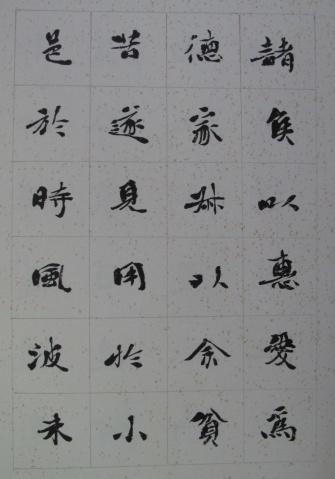 諸侯以惠愛爲
德家叔以余貧
苦遂見用於小
邑於時風波未